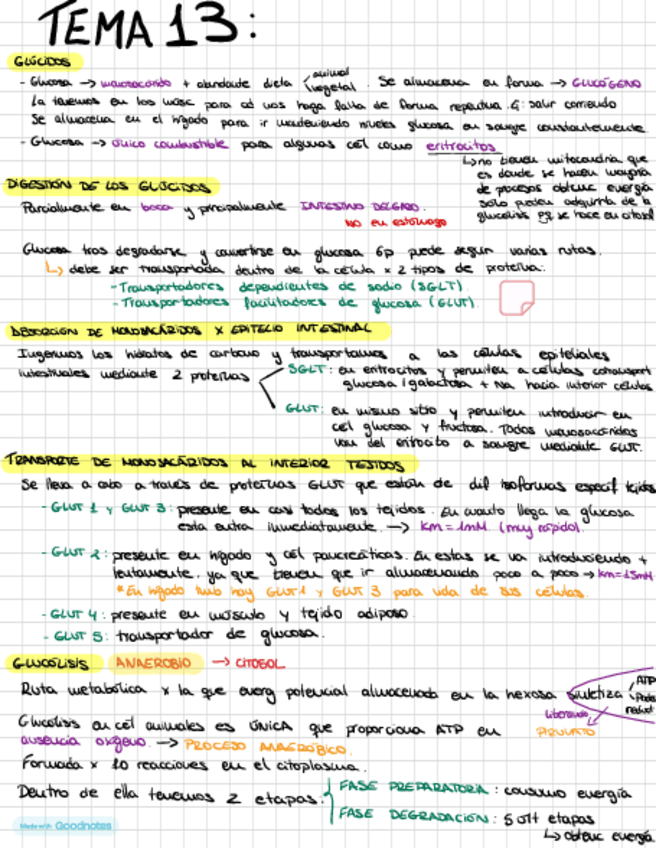 TEMA 13:
GLÚCIDOS
- Glucosa → monosacárido + abundante dieta animal vegetal. Se almacena en forma → GLUCÓGENO
La tenemos en los músc para cd nos haga falta de forma repentina. Ej: salir corriendo
Se almacena en el hígado para ir manteniendo niveles glucosa en sangre constantemente
- Glucosa → único combustible para algunas cél como eritrocitos
↳ no tienen mitocondria que
es donde se hacen mayoría
de procesos obtenc energía
solo pueden adquirirla de la
glucólisis pq se hace en citosol
DIGESTIÓN DE LOS GLÚCIDOS
Parcialmente en boca y principalmente INTESTINO DELGADO.
NO EN ESTÓMAGO
Glucosa tras degradarse y convertirse en glucosa 6p puede seguir varias rutas.
↳ debe ser transportada dentro de la célula x 2 tipos de proteína:
- Transportadores dependientes de sodio (SGLT)
- Transportadores facilitadores de glucosa (GLUT).
ABSORCIÓN DE MONOSACÁRIDOS X EPITELIO INTESTINAL
Ingerimos los hidratos de carbono y transportamos a las células epiteliales
intestinales mediante 2 proteínas
SGLT: en entrocitos y permiten a células cotransport
glucosa/galactosa + Na hacia interior células
GLUT: en mismo sitio y permiten introducir en
cél glucosa y fructosa. Todos monosacáridos
van del entrocito a sangre mediante GLUT.
TRANSPORTE DE MONOSACÁRIDOS AL INTERIOR TEJIDOS
Se lleva a cabo a través de proteínas GLUT que están de dif isoformas especif tejidos
- GLUT 1 y GLUT 3: presente en casi todos los tejidos. En cuanto llega la glucosa
esta entra inmediatamente. → km = 1mM (muy rápido).
- GLUT 2: presente en hígado y cél pancreáticas. En estas se va introduciendo +
lentamente, ya que tienen que ir almacenando poco a poco → km=15mM
*En hígado tmb hay GLUT 1 y GLUT 3 para vida de sus células.
- GLUT 4: presente en músculo y tejido adiposo.
- GLUT 5: transportador de glucosa.
GLUCÓLISIS ANAEROBIO → CITOSOL
Ruta metabólica x la que energ potencial almacenada en la hexosa sintetiza ATP
liberando PIRUVATO
Glucólisis en cél animales es ÚNICA que proporciona ATP en
ausencia oxígeno. → PROCESO ANAERÓBICO.
Formada x 10 reacciones en el citoplasma.
Dentro de ella tenemos 2 etapas:
FASE PREPARATORIA: consumo energía
FASE DEGRADACIÓN: 5 ult etapas
↳ obtenc energía
Made with Goodnotes